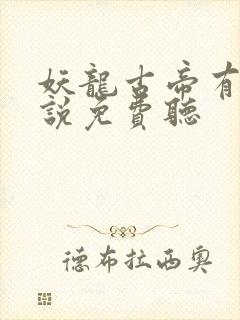 妖龍古帝有
說免費聽
德布拉西奧